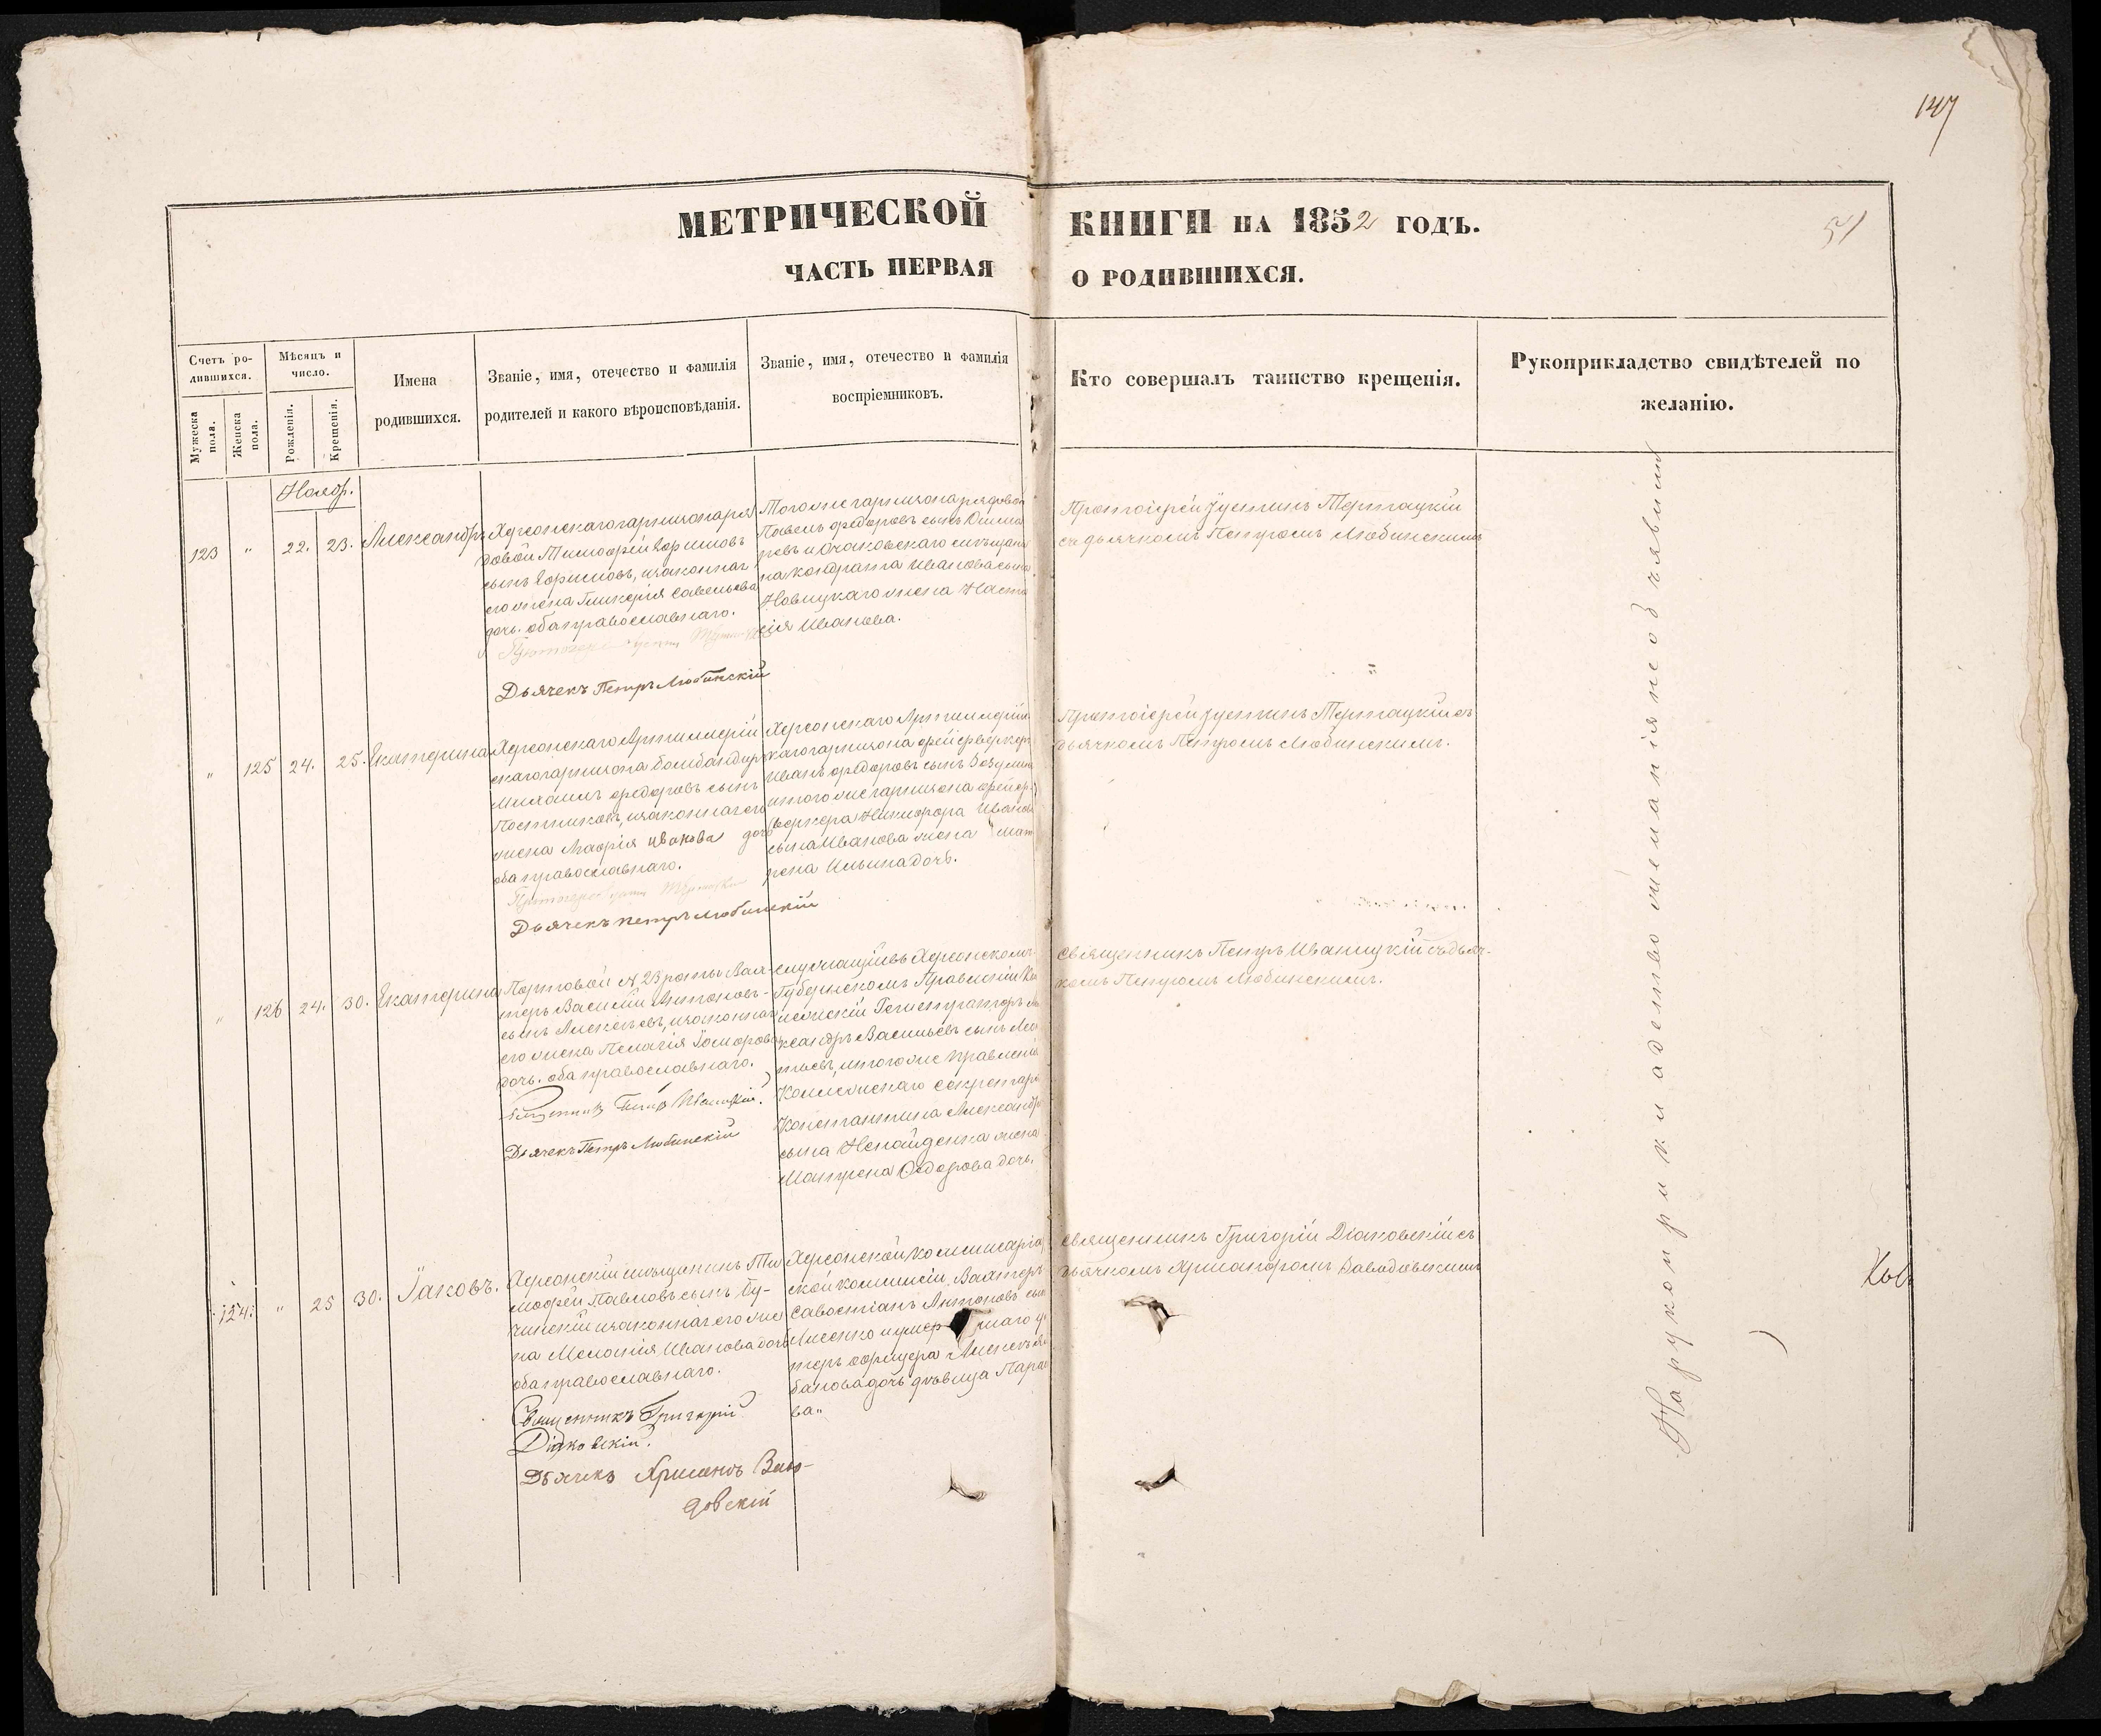 147
МЕТРИЧЕСКОЙ КНИГИ НА 1852 ГОДЪ.
51
ЧАСТЬ ПЕРВАЯ О РОДИВШИХСЯ.
Счетъ ро-
дившихся.
Мужеска пола.
Женска пола.
Мѣсяцъ и
число.
Рожденія.
Крещенія.
Имена
родившихся.
Званіе, имя, отечество и фамилія
родителей и какого вѣроисповѣданія.
Званіе, имя, отечество и фамилія
воспріемниковъ.
Кто совершалъ таинство крещенія.
Рукоприкладство свидѣтелей по
желанію.
Ноябр.
123 " 22. 23. Александръ
Херсонскаго гарнизона ря
довой Тимофей Ефимовъ
сынъ Ефимовъ, и законная
его жена Гликерія Савельева
дочь. оба православнаго.
Дьячекъ Петръ Любинскій
Тогоже гарнизона рядовой
Павелъ Федоровъ сынъ
ровъ и Очаковскаго мѣщани
на Кондрата Иванова сына
Новицкаго жена Наста
сія Иванова.
Протоіерей Іустинъ Терлацкій
съ дьячкомъ Петромъ Любинскимъ
" 125 24. 25. Екатерина
Херсонскаго Артиллерій
скаго гарнизона бомбандиръ
Михаилъ Федоровъ сынъ
Постниковъ, и законная его
жена Марія Иванова дочь
оба православнаго.
Дьячекъ Петръ Любинскій
Херсонскаго Артиллерій
скаго гарнизона фейерверкеръ
Иванъ Федоровъ сынъ
и тогоже гарнизона фейер-
веркера Никифора Иванова
сына Иванова жена Мат
рена Ильина дочь.
Протоіерей Іустинъ Терлацкій съ
дьячкомъ Петромъ Любинскимъ.
" 126 24. 30. Екатерина
Портовой № 23 роты Вах-
теръ Василій Антоновъ-
сынъ Алексѣевъ, и законная
его жена Пелагія
дочь. оба православнаго.
Священникъ Петръ Иваницкій.
Дьячекъ Петръ Любинскій
Служащій въ Херсонскомъ
Губернскомъ Правленіи Кол
лежскій Регистраторъ Але
ксандръ Васильевъ сынъ
и тогоже Правленія
Коллежскаго Секретаря
Константина Александр
сына Ненайденка жена
Матрена Федорова дочь.
Священникъ Петръ Иваницкій съ дьяч-
комъ Петромъ Любинскимъ.
124. " 25 30. Іаковъ.
Херсонскій мѣщанинъ Ти
мофей Павловъ сынъ Бу-
чинскій и законная его же
на Меланія Иванова дочь
оба православнаго.
Священникъ Григорій
Діаковскій.
Дьячекъ Хрисанфъ Заво-
довскій
Херсонской коммисаріат
ской коммисіи Вахтеръ
Савостіанъ Антоновъ сынъ
Лисенко и умершаго у
теръ офицера Алексѣя
банова дочь дѣвица Парас
ва"
Священникъ Григорій Діаковскій съ
дьячкомъ Хрисанфомъ Заводовскимъ
На рукоприкладство желанія не объявили